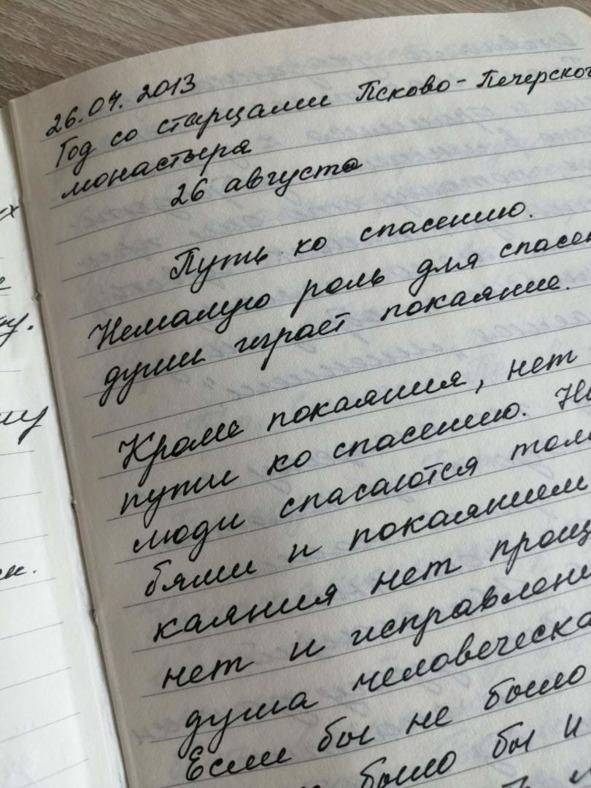 26.04.2013
Год со старцами Псково-Печерског
монастыря
26 августа
Путь ко спасению.
Немалую роль для спасен
души играет покаяние.
Кроме покаяния, нет
пути ко спасению. Н
люди спасаются тол
бями и покаянием
каяния нет прощ
нет и исправлени
душа человеческа
Если бы не было
было бы и
х
у.
му